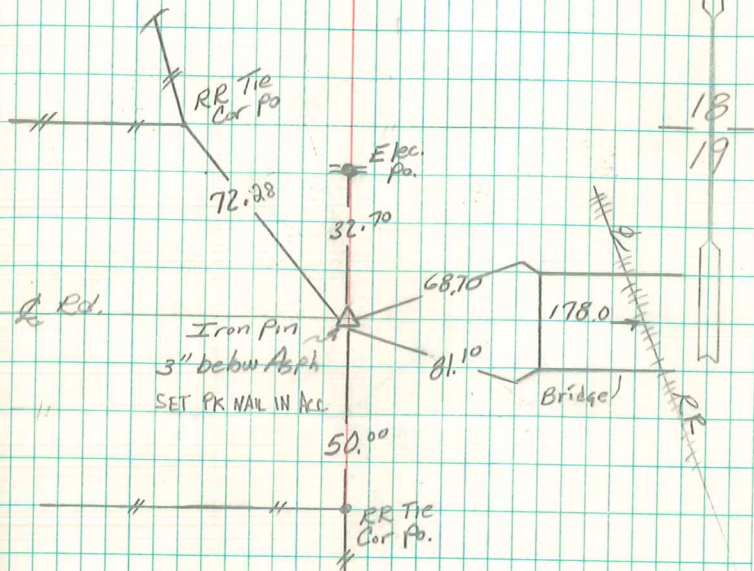 RR Tie
Cor Po
18
19
Elec.
Po.
72.28
32.70
68.70
℄ Rd.
Iron Pin
3" below Asph
SET PK NAIL IN ACC
178.0
81.10
Bridge
℄
RR
50.00
RR Tie
Cor Po.